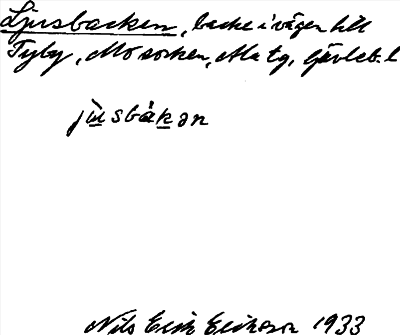 Ljusbacken, backe i vägen till
Tyby, Mo socken, Ala tg, Gävleb. l
jusbakən
Nils Erik Erikson 1933